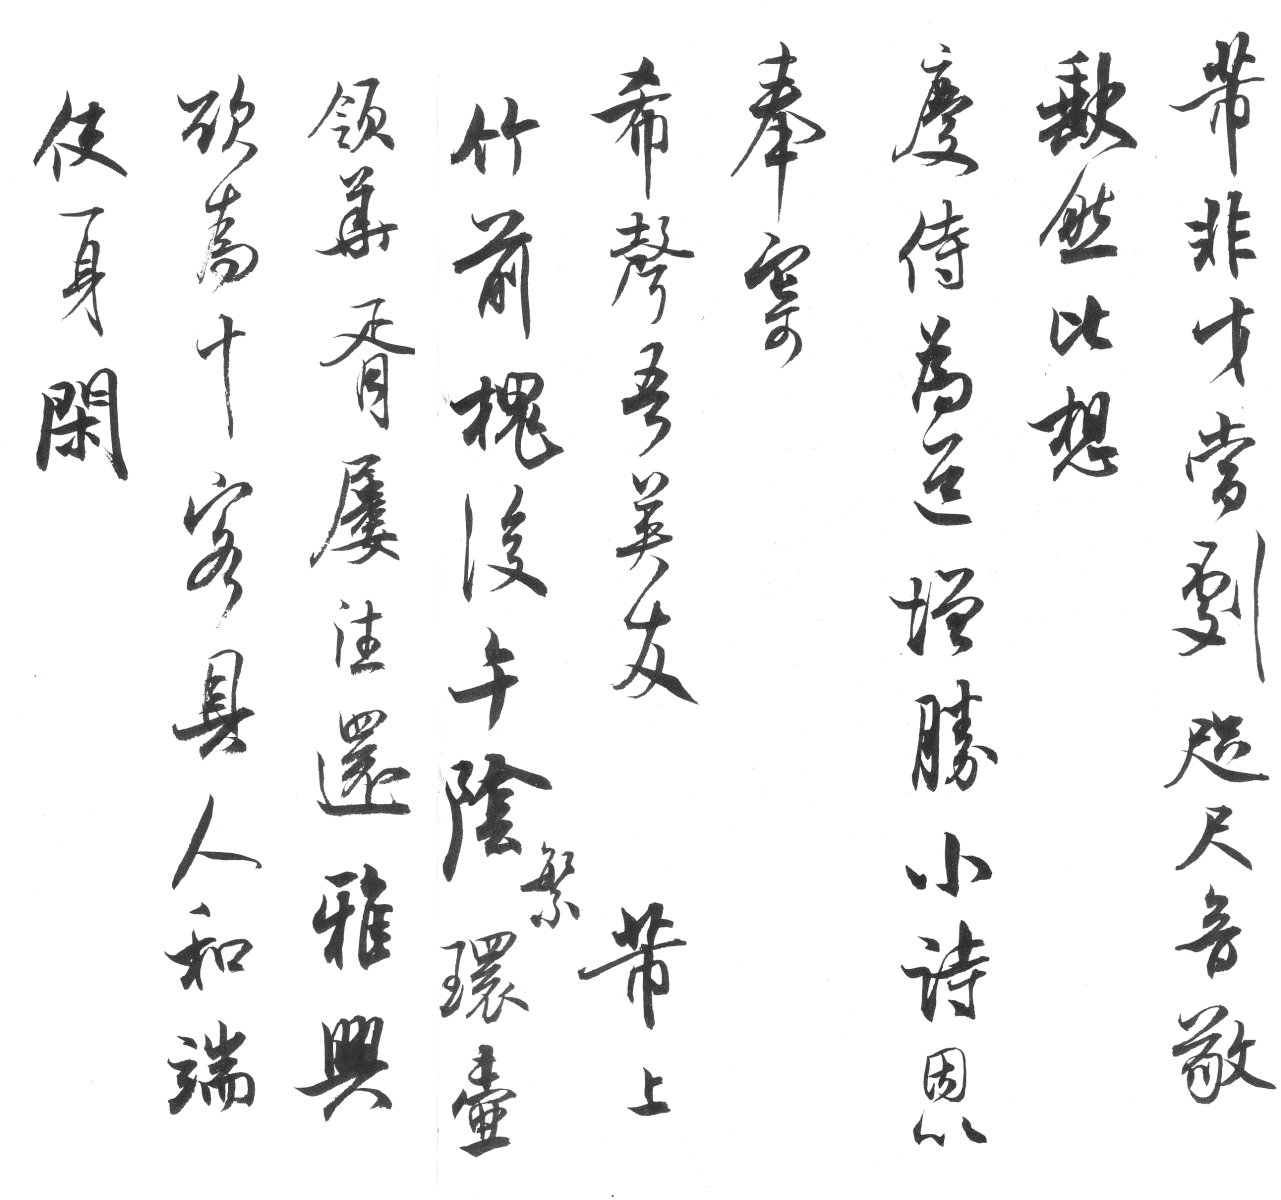 芾非才當劇咫尺音敬
歉然比想
慶侍為道增勝小詩因以
奉寄
希聲吾英友 芾上
竹前槐後午陰繁環壺
領華胥屢往還雅興
欲為十客具人和端
使一身閑